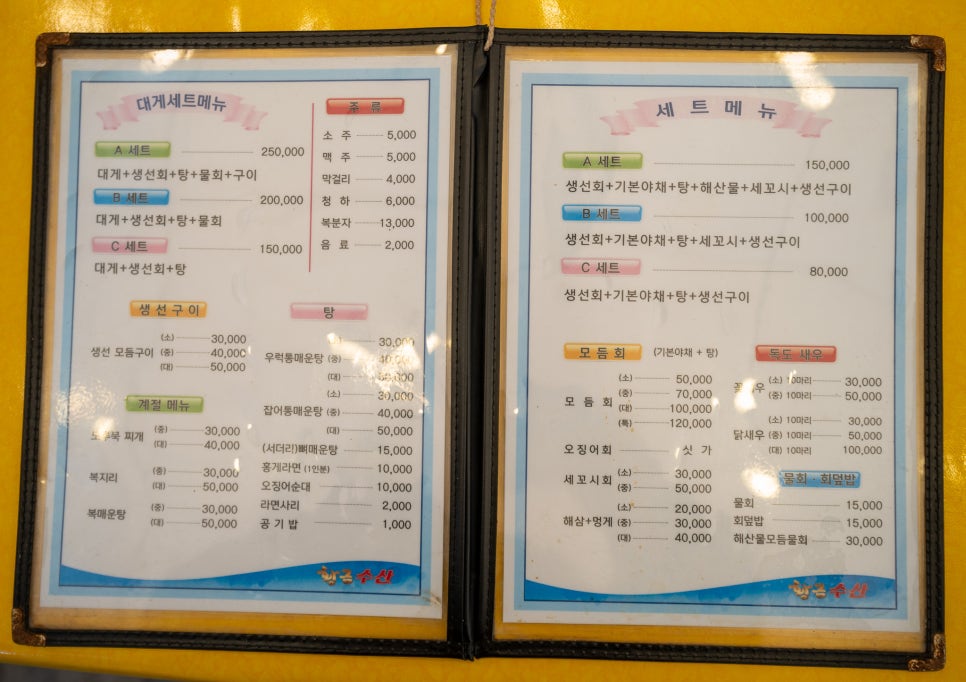 대게세트메뉴
A 세트 250,000
대게+생선회+탕+물회+구이
B 세트 200,000
대게+생선회+탕+물회
C 세트 150,000
대게+생선회+탕
주 류
소 주 5,000
맥 주 5,000
막걸리 4,000
청 하 6,000
복분자 13,000
음 료 2,000
생선구이
(소) 30,000
생선 모듬구이 (중) 40,000
(대) 50,000
계절 메뉴
찌개 (중) 30,000
(대) 40,000
복지리 (중) 30,000
(대) 50,000
복매운탕 (중) 30,000
(대) 50,000
탕
30,000
우럭통매운탕 (중) 40,000
(대)
(소) 30,000
잡어통매운탕 (중) 40,000
(대) 50,000
(서더리)뼈매운탕 15,000
홍게라면 (1인분) 10,000
오징어순대 10,000
라면사리 2,000
공 기 밥 1,000
황금수산
세 트 메 뉴
A 세트 150,000
생선회+기본야채+탕+해산물+세꼬시+생선구이
B 세트 100,000
생선회+기본야채+탕+세꼬시+생선구이
C 세트 80,000
생선회+기본야채+탕+생선구이
모 듬 회 (기본야채 + 탕)
(소) 50,000
모 듬 회 (중) 70,000
(대) 100,000
(특) 120,000
오징어회 싯 가
세꼬시회 (소) 30,000
(중) 50,000
(소) 20,000
해삼+멍게 (중) 30,000
(대) 40,000
독도 새우
(소) 10마리 30,000
(중) 10마리 50,000
(소) 10마리 30,000
닭새우 (중) 10마리 50,000
(대) 10마리 100,000
물회 · 회덮밥
물회 15,000
회덮밥 15,000
해산물모듬물회 30,000
황금수산